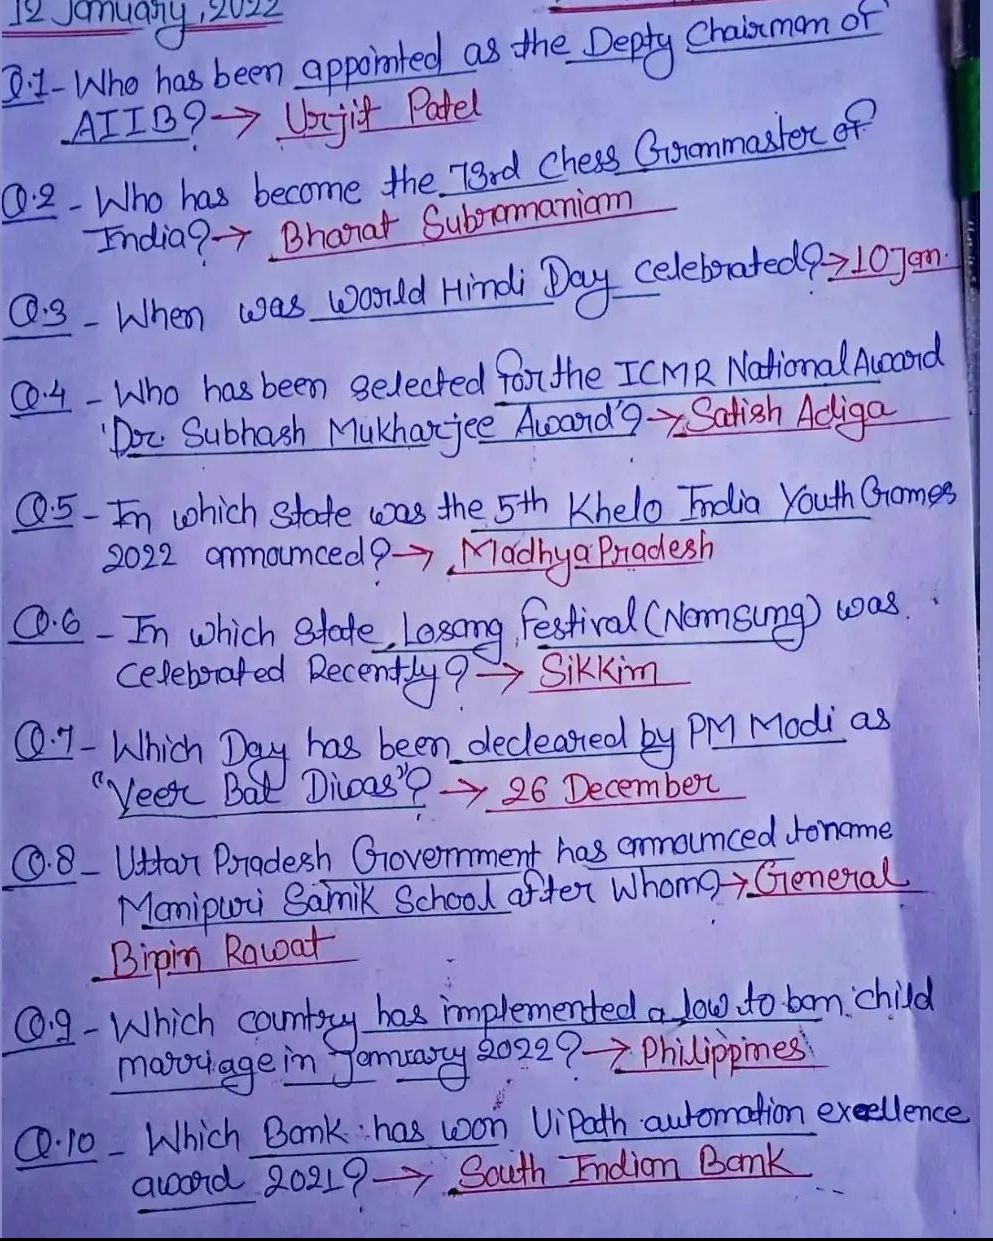 12 January, 2022
Q.1- Who has been appointed as the Depty Chairman of
AIIB? → Urjit Patel
Q.2 - Who has become the 73rd Chess Granmaster of
India? → Bharat Subramaniam
Q.3 - When was World Hindi Day celebrated? → 10 Jan.
Q.4 - Who has been selected for the ICMR National Award
'Dr. Subhash Mukharjee Award'? → Satish Adiga
Q.5 - In which state was the 5th Khelo India Youth Games
2022 announced? → Madhya Pradesh
Q.6 - In which state Losang Festival (Namsung) was
celebrated Recently? → Sikkim
Q.7 - Which Day has been decleared by PM Modi as
"Veer Bal Diwas"? → 26 December
Q.8 - Uttar Pradesh Government has announced to name
Manipuri Sainik School after whom? → General
Bipin Rawat
Q.9 - Which country has implemented a law to ban child
marriage in January 2022? → Philippines
Q.10 - Which Bank has won UiPath automation excellence
award 2021? → South Indian Bank